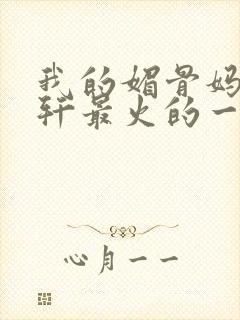 我的媚骨妈
轩最火的一
心月一一